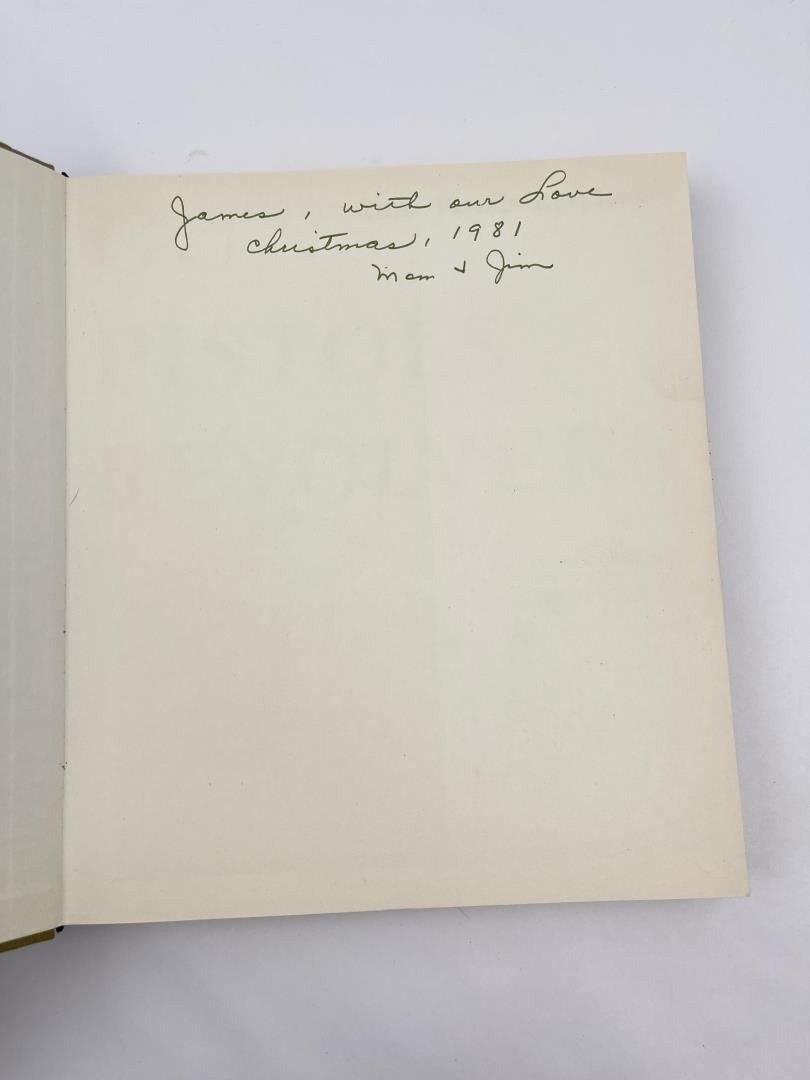 James, with our Love
Christmas, 1981
Mom & Jim